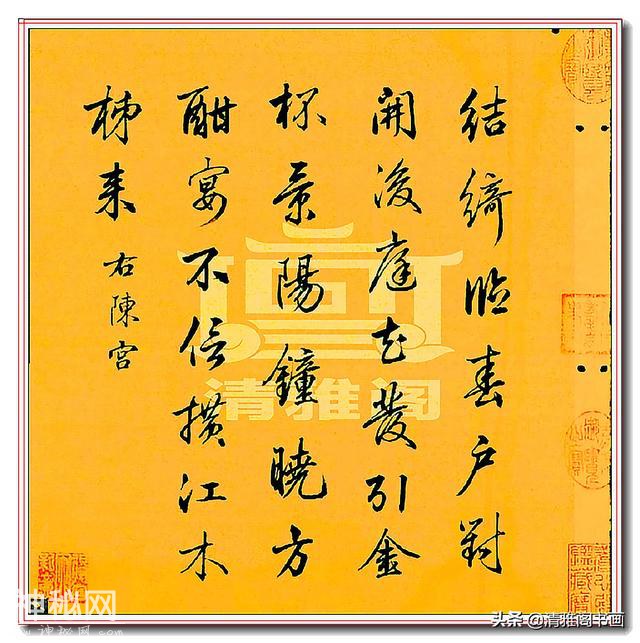 結綺臨春戶對
開後庭花發引金
杯景陽鐘曉方
酣宴不信橫江木
柹来 右陳宮
清雅阁
神秘网
头条@清雅阁书画